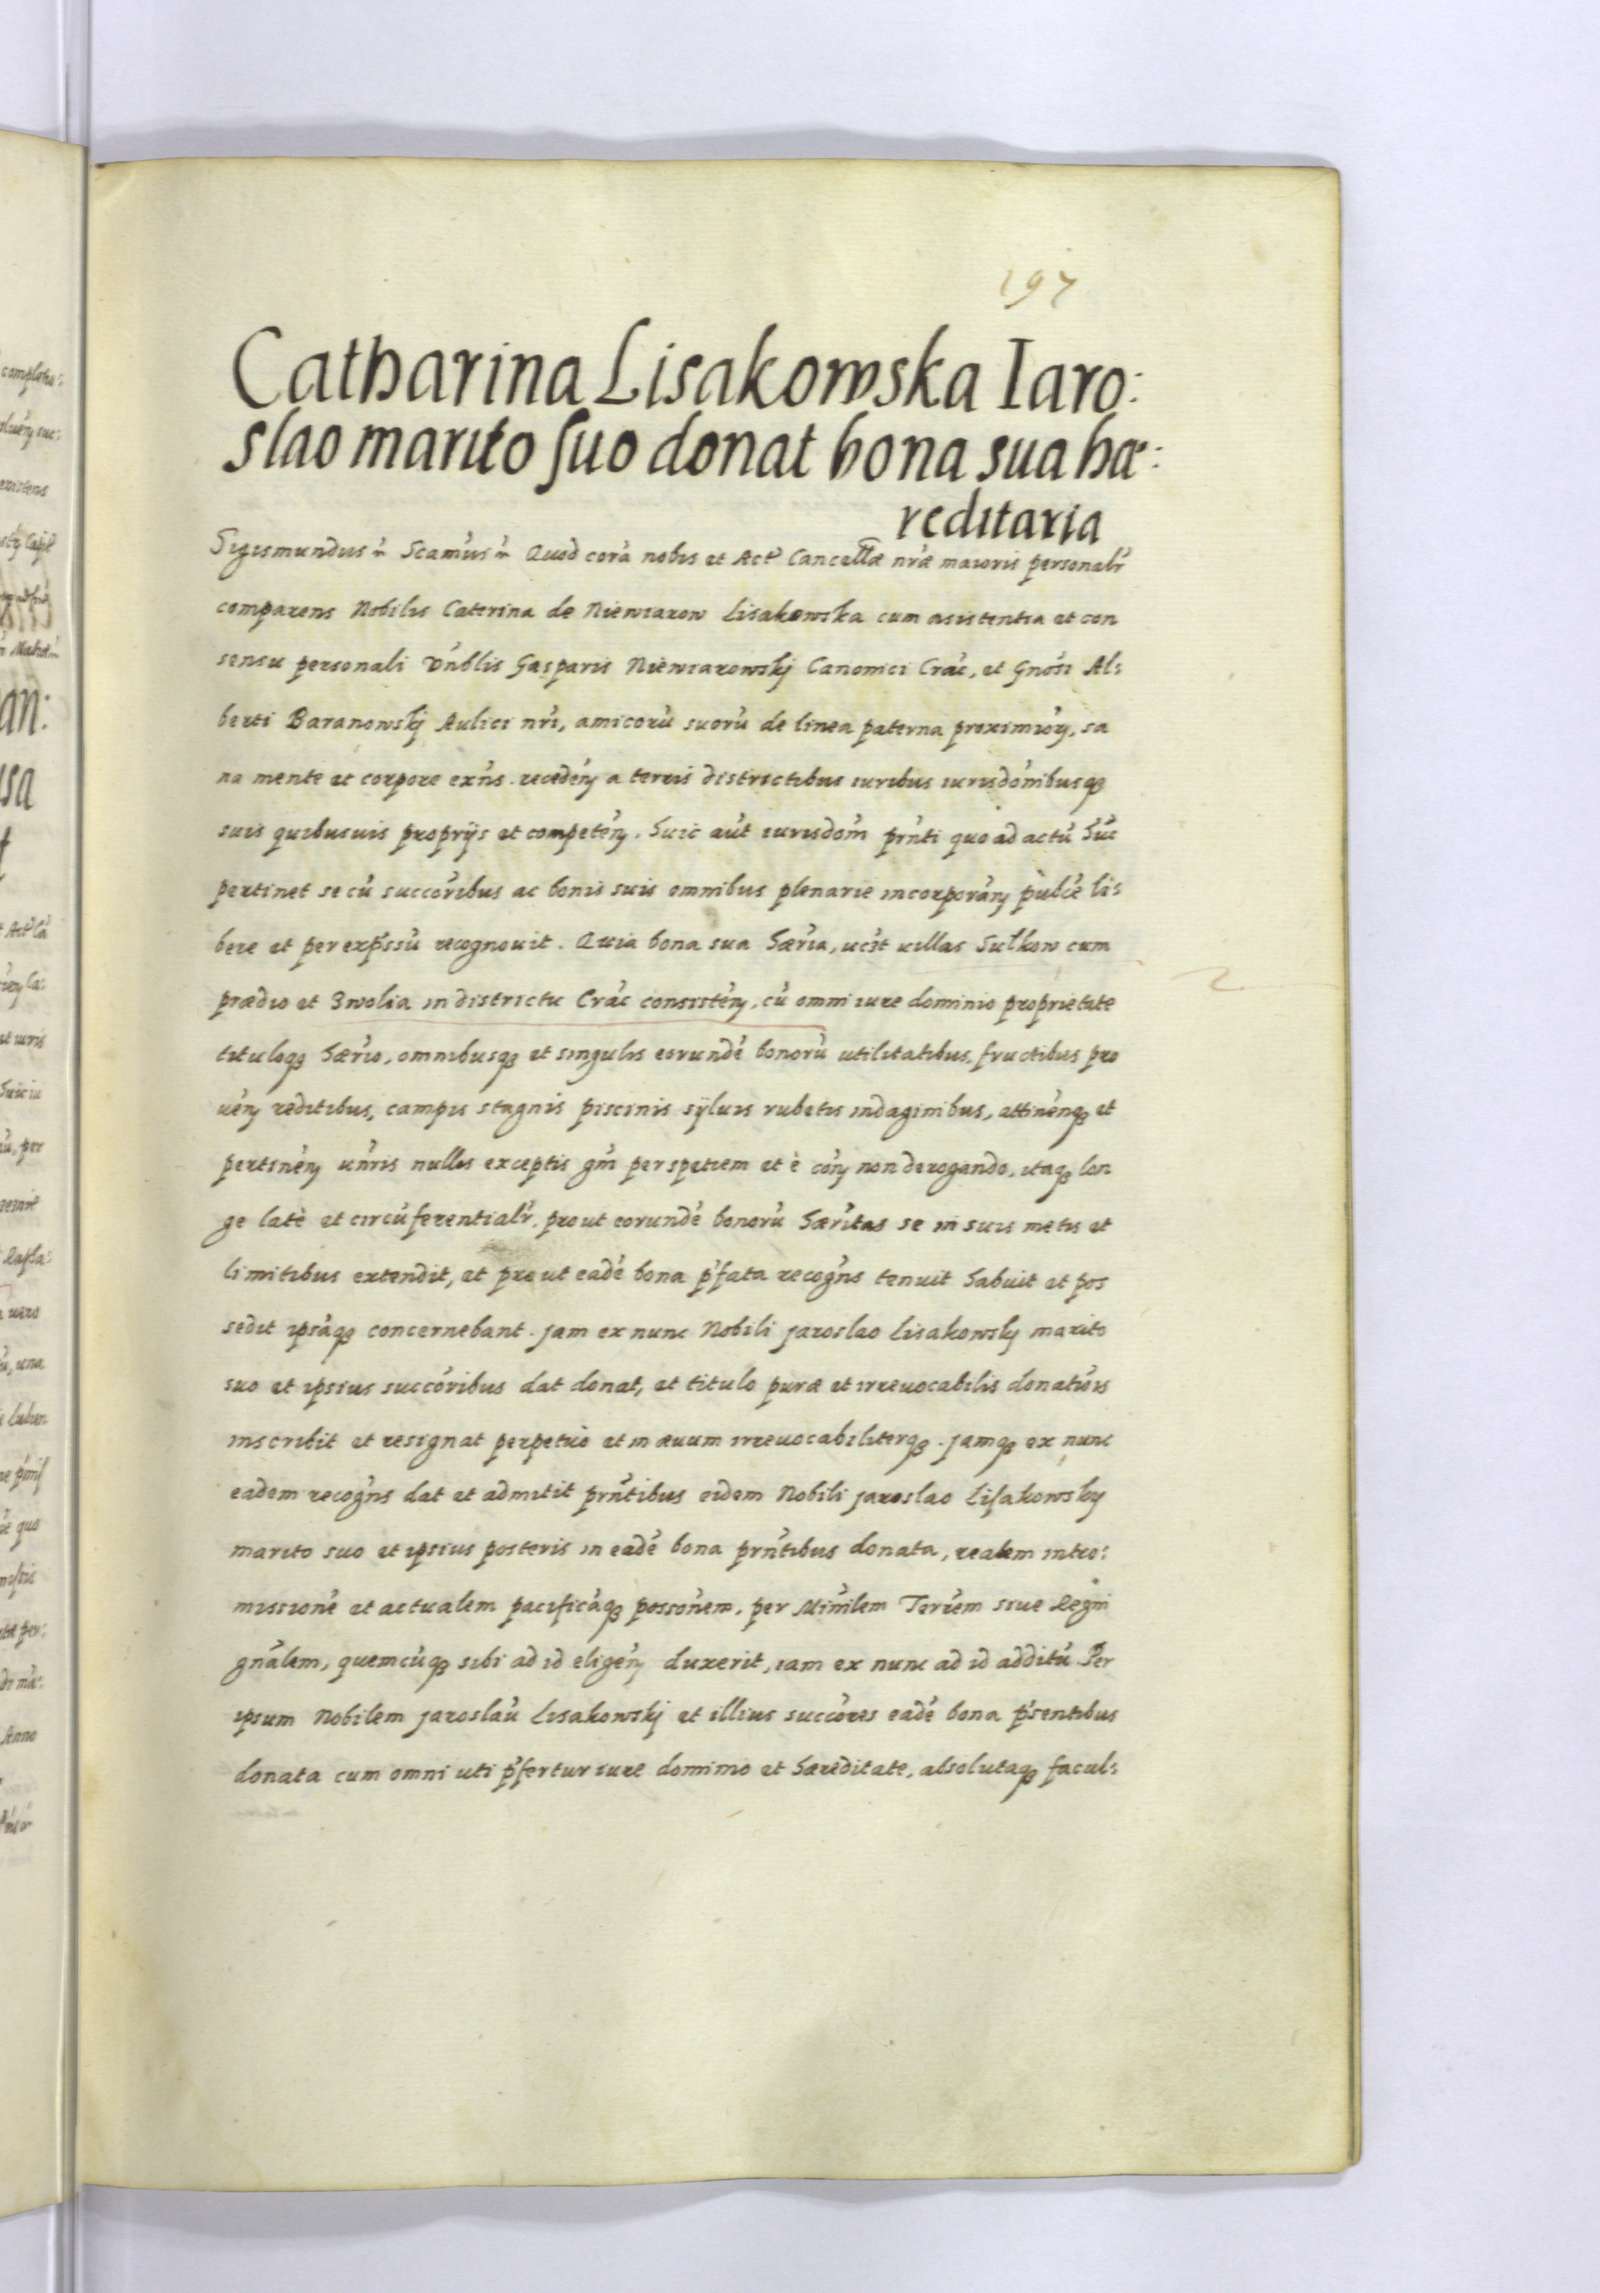 197
Catharina Lisakowska Iaro:
slao marito suo donat bona sua hæ:
reditaria
Sigismundus Scam's Quod corã nobis et Act' Cancellæ nr̃æ maioris personalr̃
comparens Nobilis Caterina de Niewiarow Lisakowska cum asistentia et con
sensu personali Vñblis Gasparis Niewiarowskj Canonici Crac̃, et Gnosi Al:
berti Baranowskj Aulici nr̃i, amicorũ suorũ de linea paterna proximior̃, sa
na mente et corpore exñs recedeñ a terris districtibus iuribus iurisdonibusq₃
suis quibusuis proprijs et competeñ. Huic aũt iurisdoni prñti quo ad actũ hũc
pertinet se cũ succoribus ac bonis suis omnibus plenarie incorporañ publce li:
bere et per exp̃ssũ recognouit. Quia bona sua hær̃ia, uczt uillas Sulkow cum
prædio et Zwolia in districtu Crac̃ consisteñ, cũ omni iure dominio proprietate
tituloq₃ hær̃io, omnibusq₃ et singulis eorundẽ bonorũ utilitatibus, fructibus pro
ueñ reditibus, campis stagnis piscinis syluis rubetis indaginibus, attineñq₃ et
pertineñ uñris nullis exceptis gñi per spetiem et è coñ non derogando, itaq₃ lon
ge latè et circũferentialr̃, prout eorundẽ bonorũ hær̃itas se in suis metis et
limitibus extendit, et prout eadẽ bona p̃fata recogñs tenuit habuit et pos
sedit ipsãq₃ concernebant. Jam ex nunc Nobili Jaroslao Lisakowskj marito
suo et ipsius succoribus dat donat, et titulo puræ et irreuocabilis donatiõis
inscribit et resignat perpetuò et in æuum irreuocabiliterq₃. Jamq₃ ex nunc
eadem recogñs dat et admitit prñtibus eidem Nobili Jaroslao Lisakowsky
marito suo et ipsius posteris in eadẽ bona prñtibus donata, realem intro:
missionẽ et actualem pacificãq₃ possonem, per Minilem Terr̃em siue Regni
gñalem, quemcũq₃ sibi ad id eligeñ duxerit, iam ex nunc ad id additũ Per
ipsum Nobilem Jaroslaũ Lisakowskj et illius succores eadẽ bona p̃sentibus
donata cum omni uti p̃fertur iure dominio et hæreditate, absolutaq₃ facul: